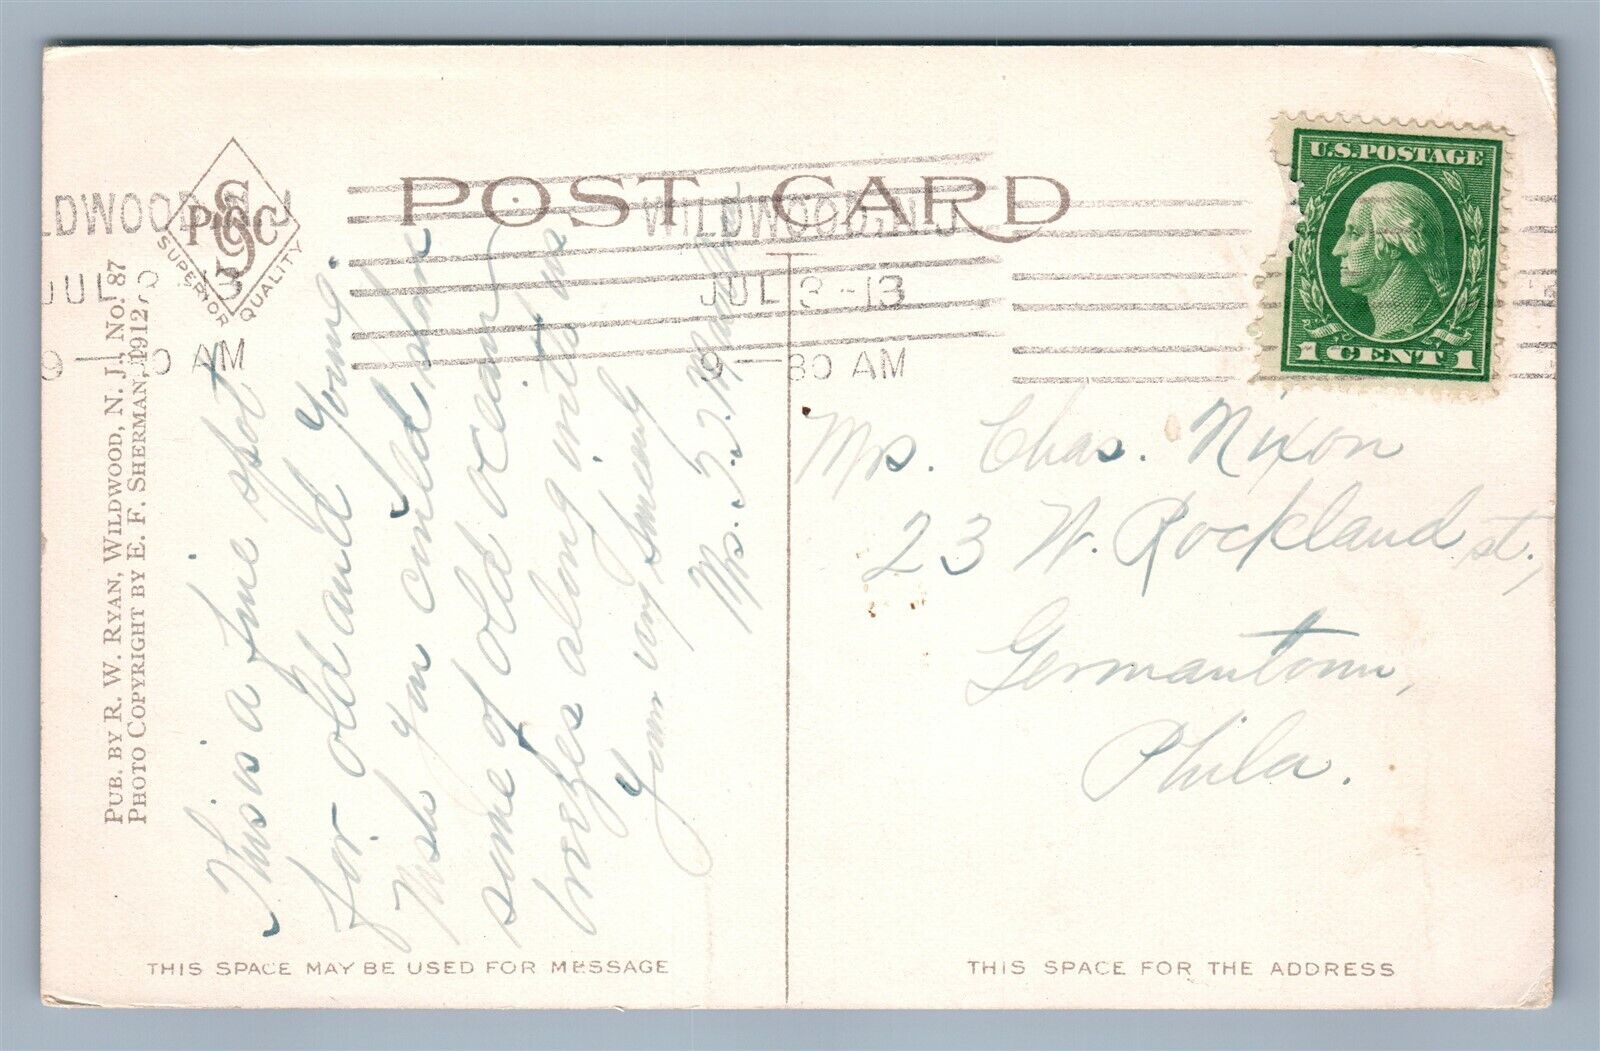 POST CARD
WILDWOOD, N.J.
JUL 3-13
9-30 AM
LDWOOD, N.J
JUL 3 13
9- 0 AM
U.S. POSTAGE
1 CENT 1
PSC
SUPERIOR QUALITY
PUB. BY R. W. RYAN, WILDWOOD, N. J., NO. 87
PHOTO COPYRIGHT BY E. F. SHERMAN, 1912
This is a fine spot
for old and young.
Wish you could take
some of old ocean
brezes along with us
Yours very Sincerely
Mrs. J. J.
Mrs. Chas. Nixon
23 W. Rockland st.,
Germantown,
Phila.
THIS SPACE MAY BE USED FOR MESSAGE
THIS SPACE FOR THE ADDRESS